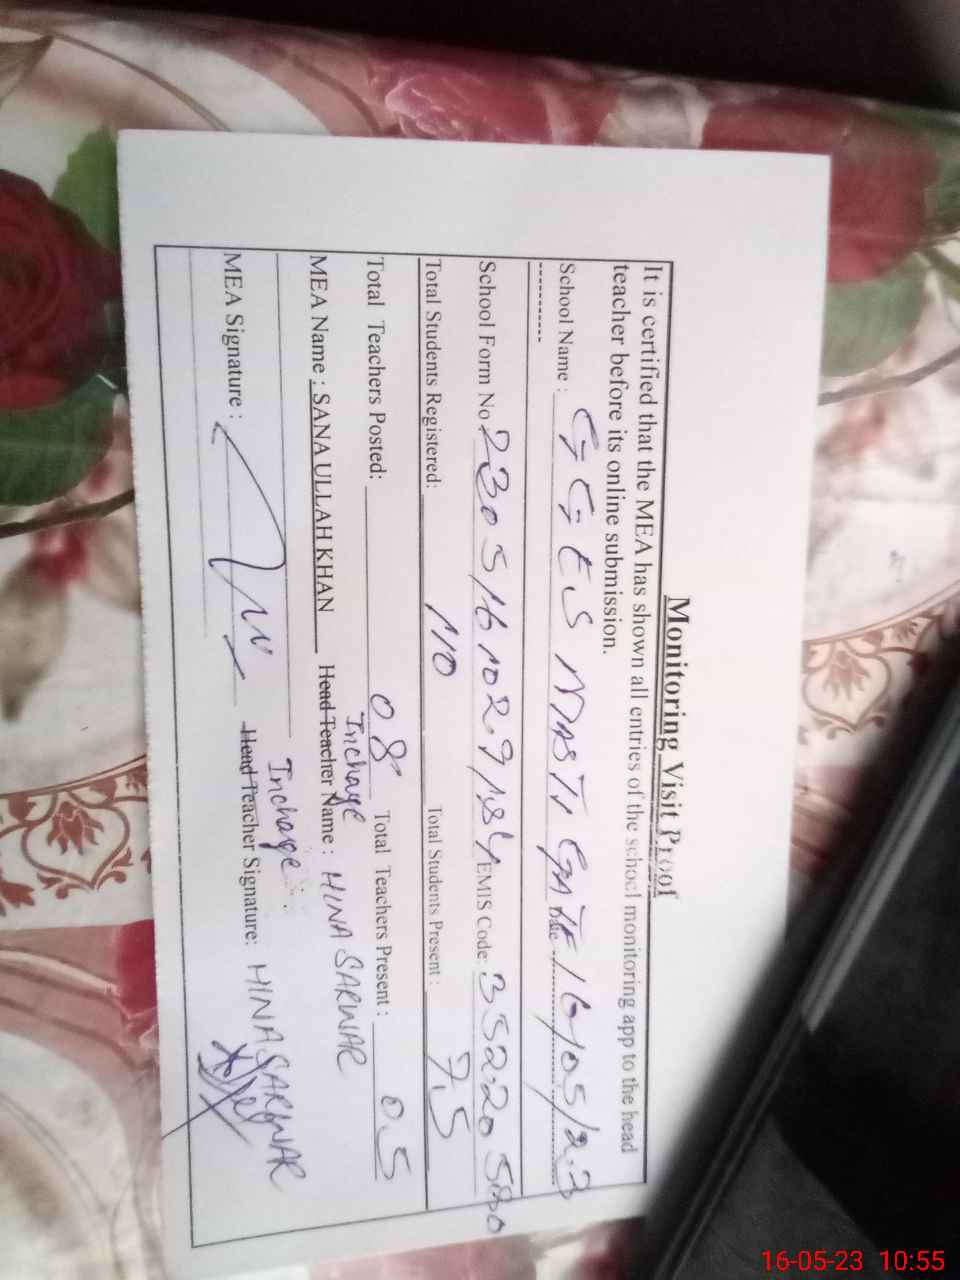 Monitoring Visit Proof
It is certified that the MEA has shown all entries of the school monitoring app to the head
teacher before its online submission.
School Name : GGES MASTI GATE Date 16/05/23
----------
School Form No 2305161029184 EMIS Code: 35220580
Total Students Registered: 110 Total Students Present : 75
Total Teachers Posted: 08 Total Teachers Present : 05
Incharge
MEA Name : SANA ULLAH KHAN Head Teacher Name : HINA SARWAR
Incharge
MEA Signature : Head Teacher Signature: HINA SARWAR
16-05-23 10:55